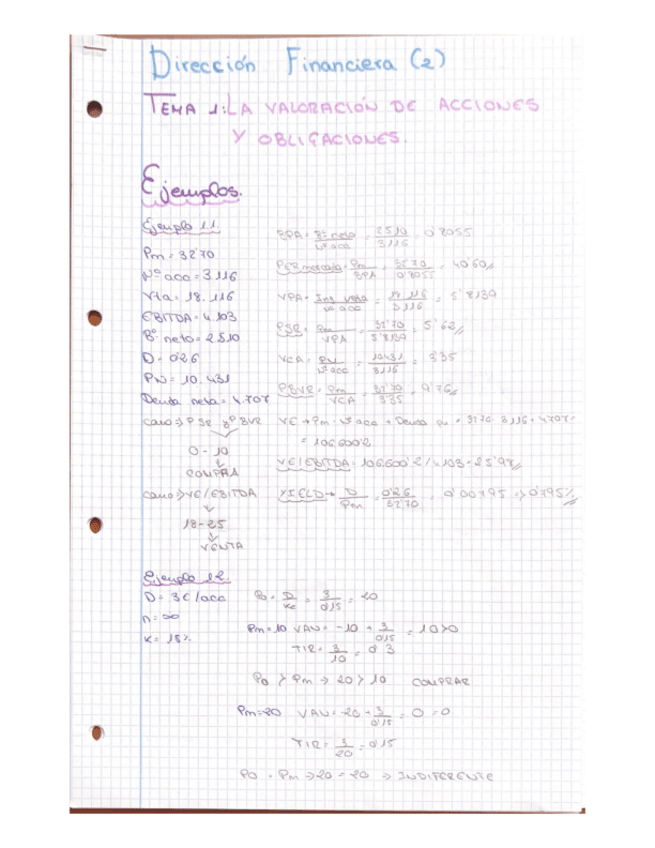 Dirección Financiera (2)
TEMA 1: LA VALORACIÓN DE ACCIONES
Y OBLIGACIONES.
Ejemplos.
Ejemplo 1.1
Pm = 32'70
Nº acc = 3.116
Vta = 18.116
EBITDA = 4.103
Bº neto = 2.510
D = 0'26
PN = 10.431
Deuda neta = 4.707
0 - 10
COMPRA
caro => VE/EBITDA
18-25
VENTA
BPA = Bº neto / Nº acc = 2510 / 3.116 = 0'8055
PER mercado = Pm / BPA = 32'70 / 0'8055 = 40'60
VPA = / Nº acc = / 3.116 = 5'8139
PSR = Pm / VPA = 32'70 / 5'8139 = 5'62
VCA = PN / Nº acc = 10431 / 3116 = 3'35
PBVR = Pm / VCA = 32'70 / 3'35 = 9'76
VE → Pm · Nº acc + Deuda = 32'70 · 3.116 + 4.707 =
= 106.600'2
VE/EBITDA = 106.600'2 / 4.103 = 25'98
YIELD → D / Pm = 0'26 / 32'70 = 0'00795 => 0'795%
Ejemplo 1.2.
D = 3€/acc
n = ∞
K = 15%
Po = D / Ke = 3 / 0'15 = 20
Pm = 10 VAN = -10 + 3 / 0'15 = 10 > 0
TIR = 3 / 10 = 0'3
Po > Pm → 20 > 10 COMPRAR
Pm = 20 VAN = -20 + 3 / 0'15 = 0 = 0
TIR = 3 / 20 = 0'15
Po = Pm → 20 = 20 → INDIFERENTE